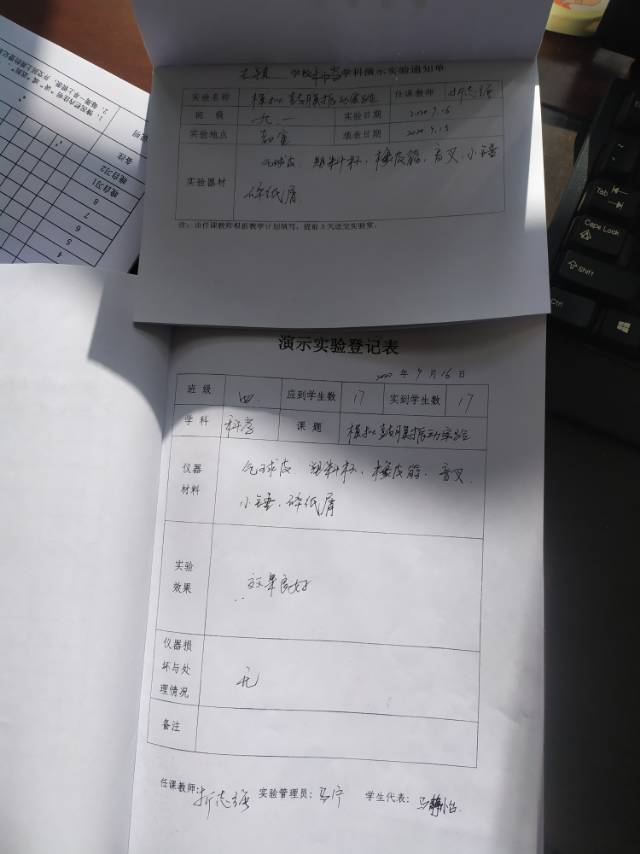 学校科学学科演示实验通知单
实验名称 模拟鼓膜振动实验 任课教师
班 级 实验日期 2020.9.16
实验地点 填报日期
实验器材 气球皮、塑料杯、橡皮筋、音叉、小锤
碎纸屑
注：由任课教师根据教学计划填写，提前3天送交实验室。
演示实验登记表
年 9 月 16 日
班 级 四. 应到学生数 17 实到学生数 17
学 科 科学 课 题 模拟鼓膜振动实验
仪器
材料
气球皮、塑料杯、橡皮筋、音叉、
小锤、碎纸屑
实验
效果
效果良好
仪器损
坏与处
理情况
无
备注
任课教师: 实验管理员: 学生代表:
晚自习1
晚自习2
备注
8
7
6
5
4
Tab
Caps Lock
A
Shift
Ctrl